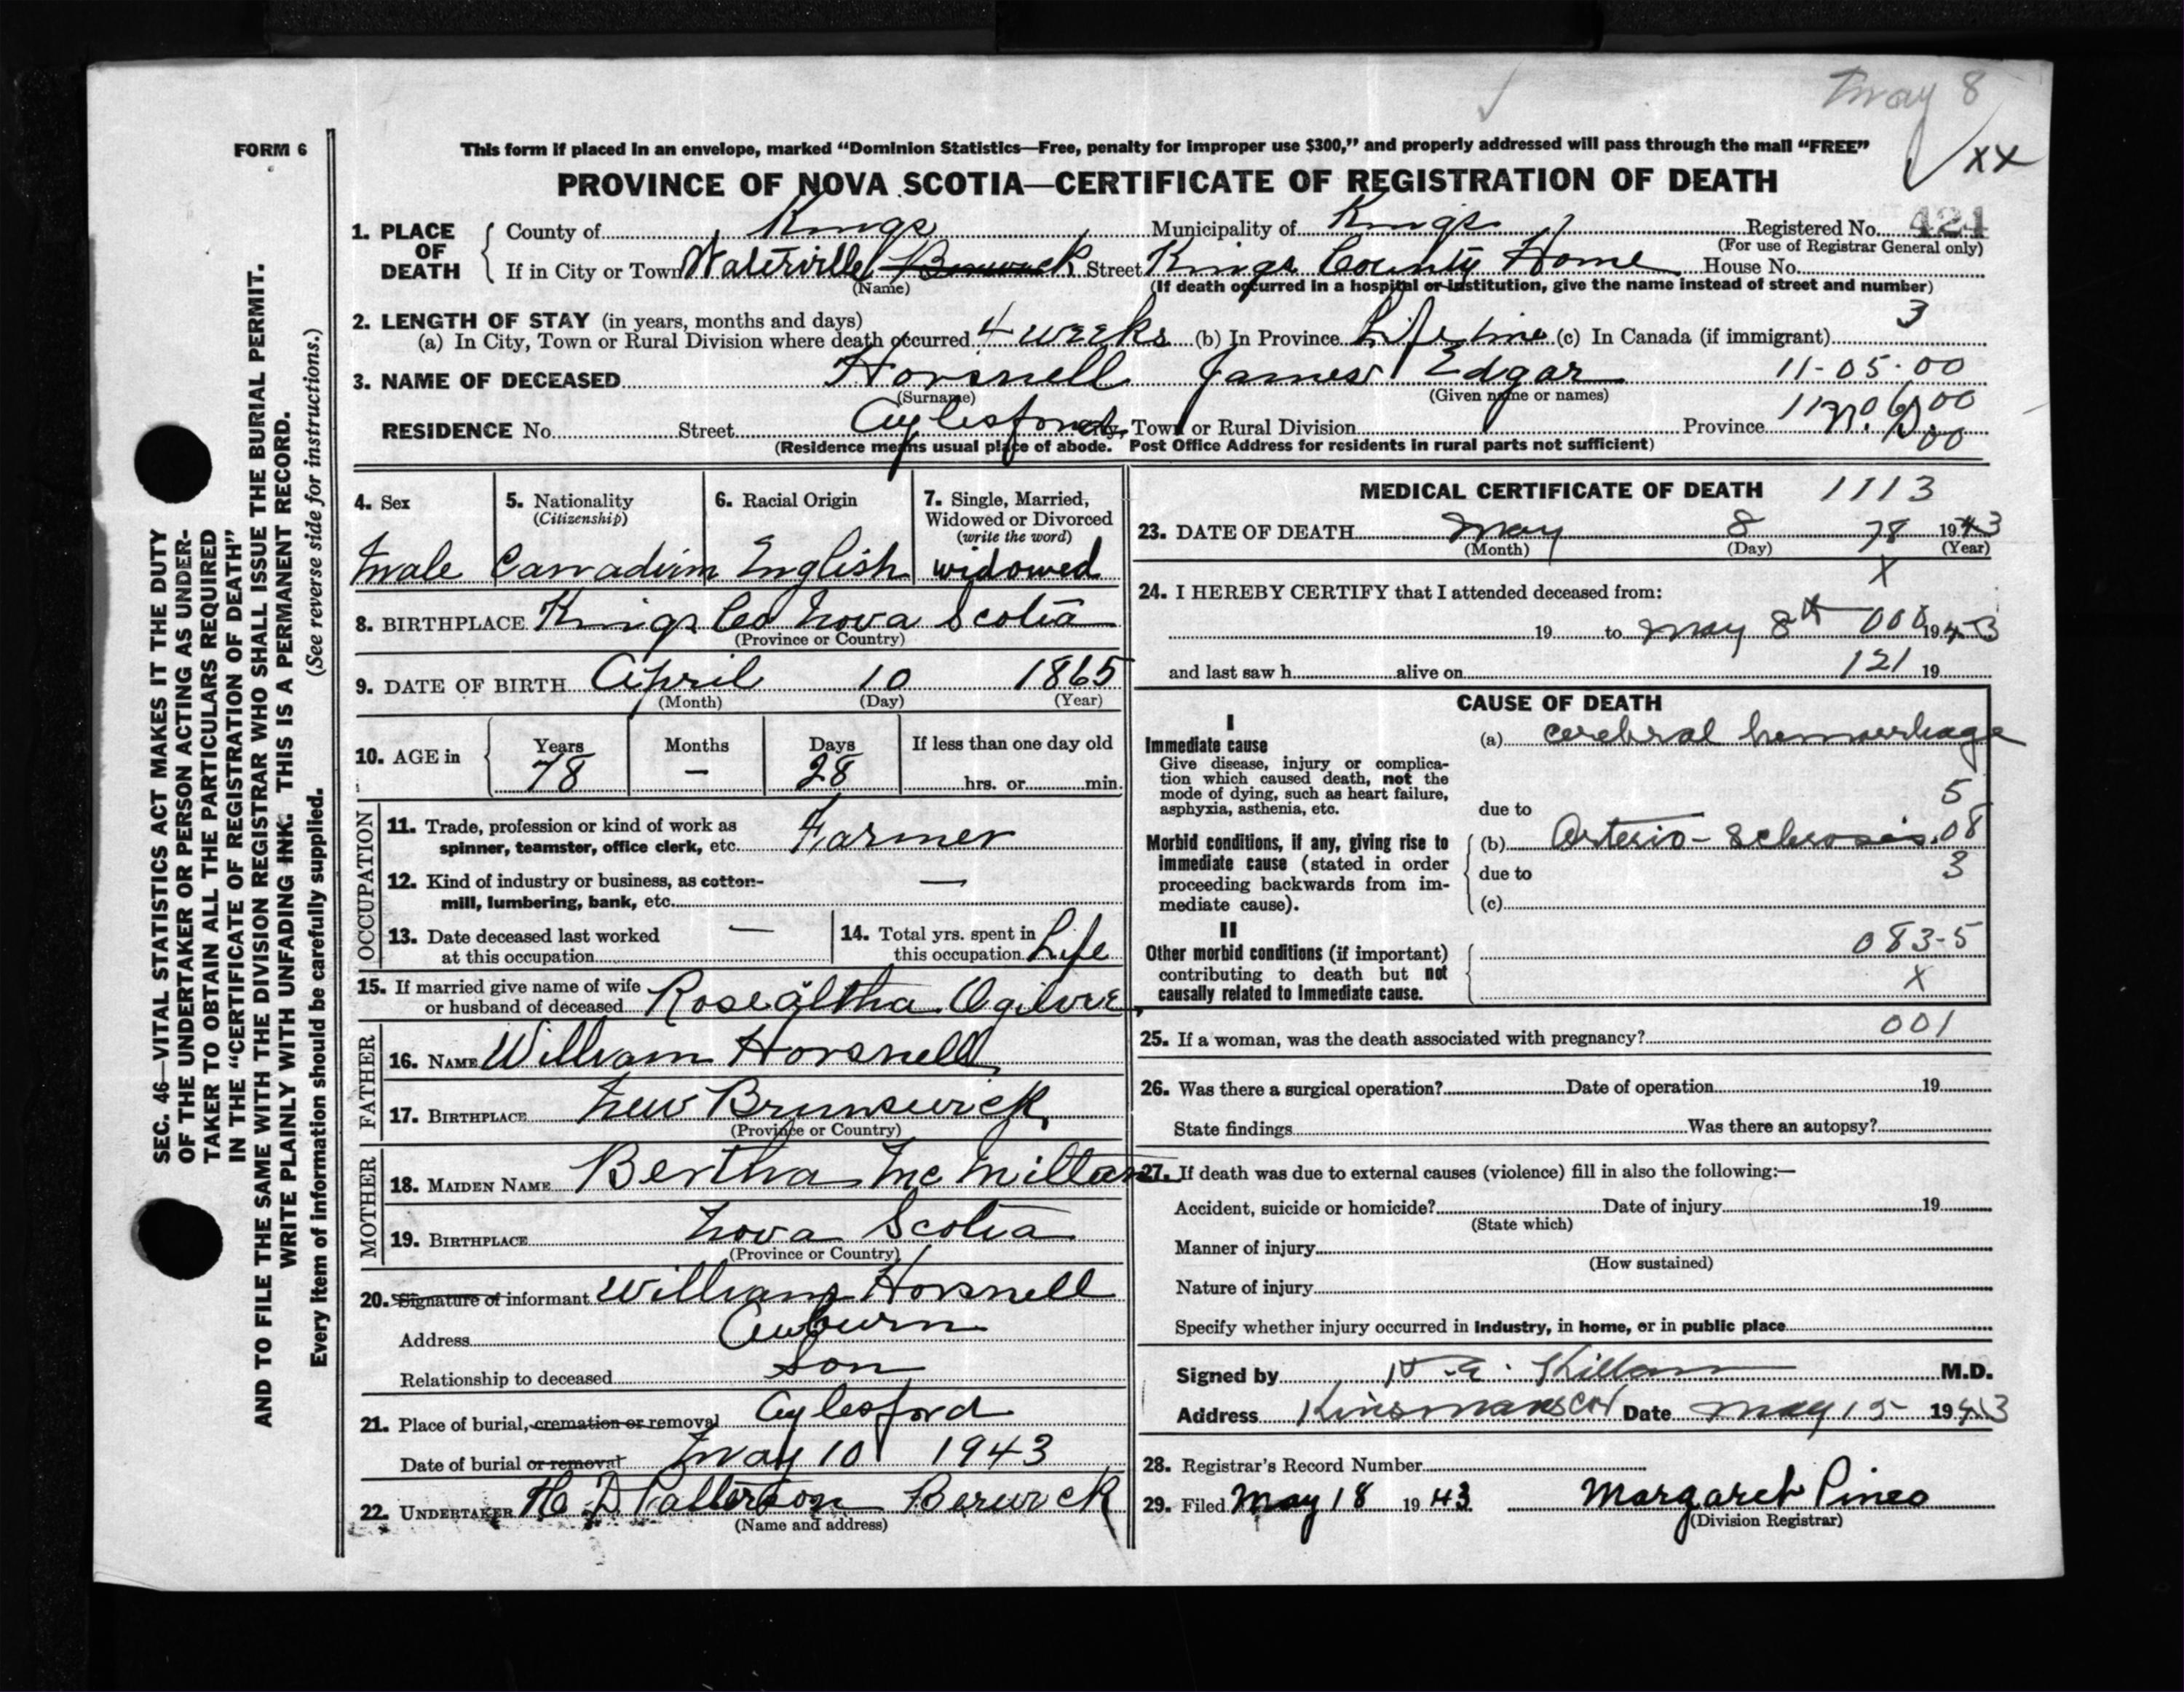 May 8
XX
FORM 6
This form if placed in an envelope, marked "Dominion Statistics—Free, penalty for improper use $300," and properly addressed will pass through the mail "FREE"
PROVINCE OF NOVA SCOTIA—CERTIFICATE OF REGISTRATION OF DEATH
1. PLACE OF DEATH County of Kings Municipality of Kings Registered No. 424
(For use of Registrar General only)
If in City or Town Waterville Berwick Street Kings County Home House No.
(Name) (If death occurred in a hospital or institution, give the name instead of street and number)
2. LENGTH OF STAY (in years, months and days) 3
(a) In City, Town or Rural Division where death occurred 4 weeks (b) In Province Life time (c) In Canada (if immigrant)
3. NAME OF DECEASED Horsnell James Edgar 11-05-00
(Surname) (Given name or names)
RESIDENCE No. Street Aylesford City, Town or Rural Division Province N.S.
(Residence means usual place of abode. Post Office Address for residents in rural parts not sufficient) 00
4. Sex 5. Nationality (Citizenship) 6. Racial Origin 7. Single, Married, Widowed or Divorced (write the word)
Male Canadian English widowed
8. BIRTHPLACE Kings Co Nova Scotia
(Province or Country)
9. DATE OF BIRTH April 10 1865
(Month) (Day) (Year)
10. AGE in Years Months Days If less than one day old
78 — 28 hrs. or min.
OCCUPATION
11. Trade, profession or kind of work as spinner, teamster, office clerk, etc. Farmer
12. Kind of industry or business, as cotton-mill, lumbering, bank, etc. —
13. Date deceased last worked at this occupation — 14. Total yrs. spent in this occupation Life
15. If married give name of wife or husband of deceased Rose Ogilvie
FATHER
16. NAME William Horsnell
17. BIRTHPLACE New Brunswick
(Province or Country)
MOTHER
18. MAIDEN NAME Bertha McMillan
19. BIRTHPLACE Nova Scotia
(Province or Country)
20. Signature of informant William Horsnell
Address Auburn
Relationship to deceased Son
21. Place of burial, cremation or removal Aylesford
Date of burial or removal May 10 1943
22. UNDERTAKER H. D Patterson Berwick
(Name and address)
MEDICAL CERTIFICATE OF DEATH 1113
23. DATE OF DEATH May 8 78 1943
(Month) (Day) (Year)
X
24. I HEREBY CERTIFY that I attended deceased from:
19 to May 8th 000 1943
and last saw h alive on 121 19
CAUSE OF DEATH
I
Immediate cause (a) cerebral hemorrhage
Give disease, injury or complication which caused death, not the mode of dying, such as heart failure, asphyxia, asthenia, etc.
5
due to
Morbid conditions, if any, giving rise to immediate cause (stated in order proceeding backwards from immediate cause).
(b) Arterio-sclerosis 08
due to 3
(c)
II
Other morbid conditions (if important) contributing to death but not causally related to immediate cause.
083-5
X
25. If a woman, was the death associated with pregnancy? 001
26. Was there a surgical operation? Date of operation 19
State findings Was there an autopsy?
27. If death was due to external causes (violence) fill in also the following:—
Accident, suicide or homicide? Date of injury 19
(State which)
Manner of injury
(How sustained)
Nature of injury
Specify whether injury occurred in industry, in home, or in public place
Signed by Killam M.D.
Address Kinsmans Cor Date May 15 1943
28. Registrar's Record Number
29. Filed May 18 1943 Margaret Pineo
(Division Registrar)
SEC. 46—VITAL STATISTICS ACT MAKES IT THE DUTY
OF THE UNDERTAKER OR PERSON ACTING AS UNDER-
TAKER TO OBTAIN ALL THE PARTICULARS REQUIRED
IN THE "CERTIFICATE OF REGISTRATION OF DEATH"
AND TO FILE THE SAME WITH THE DIVISION REGISTRAR WHO SHALL ISSUE THE BURIAL PERMIT.
WRITE PLAINLY WITH UNFADING INK. THIS IS A PERMANENT RECORD.
Every item of information should be carefully supplied. (See reverse side for instructions.)